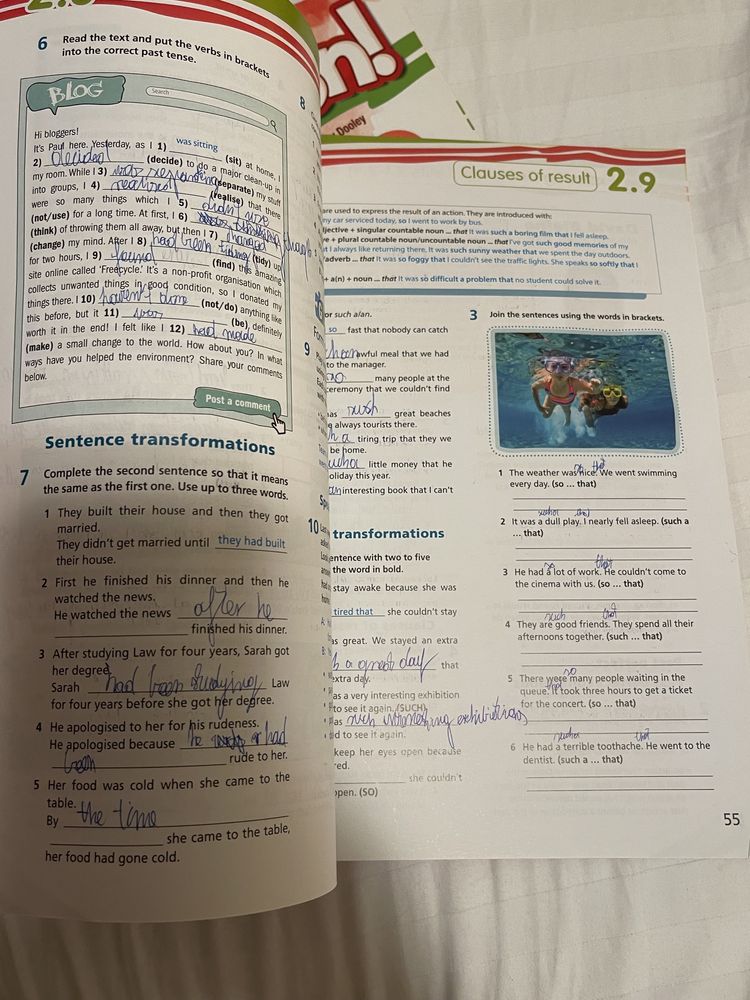 6 Read the text and put the verbs in brackets
into the correct past tense.
BLOG
Search
Hi bloggers!
It's Paul here. Yesterday, as I 1) was sitting (sit) at home, I
2) decided (decide) to do a major clean-up in
my room. While I 3) was separating (separate) my stuff
into groups, I 4) realised (realise) that there
were so many things which I 5) didn't use
(not/use) for a long time. At first, I 6) thinking
(think) of throwing them all away, but then I 7) changed
(change) my mind. After I 8) had been tiding (tidy) up
for two hours, I 9) found (find) this amazing
site online called 'Freecycle.' It's a non-profit organisation which
collects unwanted things in good condition, so I donated my
things there. I 10) haven't done (not/do) anything like
this before, but it 11) was (be), definitely
worth it in the end! I felt like I 12) had made
(make) a small change to the world. How about you? In what
ways have you helped the environment? Share your comments
below.
Post a comment
Sentence transformations
7 Complete the second sentence so that it means
the same as the first one. Use up to three words.
1 They built their house and then they got
married.
They didn't get married until they had built
their house.
2 First he finished his dinner and then he
watched the news.
He watched the news after he
finished his dinner.
3 After studying Law for four years, Sarah got
her degree.
Sarah had been studying Law
for four years before she got her degree.
4 He apologised to her for his rudeness.
He apologised because he had
been rude to her.
5 Her food was cold when she came to the
table.
By the time
she came to the table,
her food had gone cold.
8
9
10
n!
Dooley
Clauses of result 2.9
are used to express the result of an action. They are introduced with:
ny car serviced today, so I went to work by bus.
djective + singular countable noun ... that It was such a boring film that I fell asleep.
ve + plural countable noun/uncountable noun ... that I've got such good memories of my
t I always like returning there. It was such sunny weather that we spent the day outdoors.
/adverb ... that It was so foggy that I couldn't see the traffic lights. She speaks so softly that I
+ a(n) + noun ... that It was so difficult a problem that no student could solve it.
or such a/an.
so fast that nobody can catch
awful meal that we had
to the manager.
so many people at the
ceremony that we couldn't find
has such great beaches
always tourists there.
h a tiring trip that they
be home.
little money that he
oliday this year.
interesting book that I can't
transformations
entence with two to five
the word in bold.
stay awake because she was
tired that she couldn't stay
as great. We stayed an extra
h a great day that
extra day.
as a very interesting exhibition
to see it again. (SUCH)
as such interesting exhibitions
d to see it again.
keep her eyes open because
red.
she couldn't
open. (SO)
3 Join the sentences using the words in brackets.
1 The weather was so nice. that We went swimming
every day. (so ... that)
2 It was such a dull play. that I nearly fell asleep. (such a
... that)
3 He had so a lot of work. that He couldn't come to
the cinema with us. (so ... that)
4 They are such good friends. that They spend all their
afternoons together. (such ... that)
5 There were so many people waiting in the
queue. It took three hours to get a ticket
for the concert. (so ... that)
6 He had such a terrible toothache. that He went to the
dentist. (such a ... that)
55